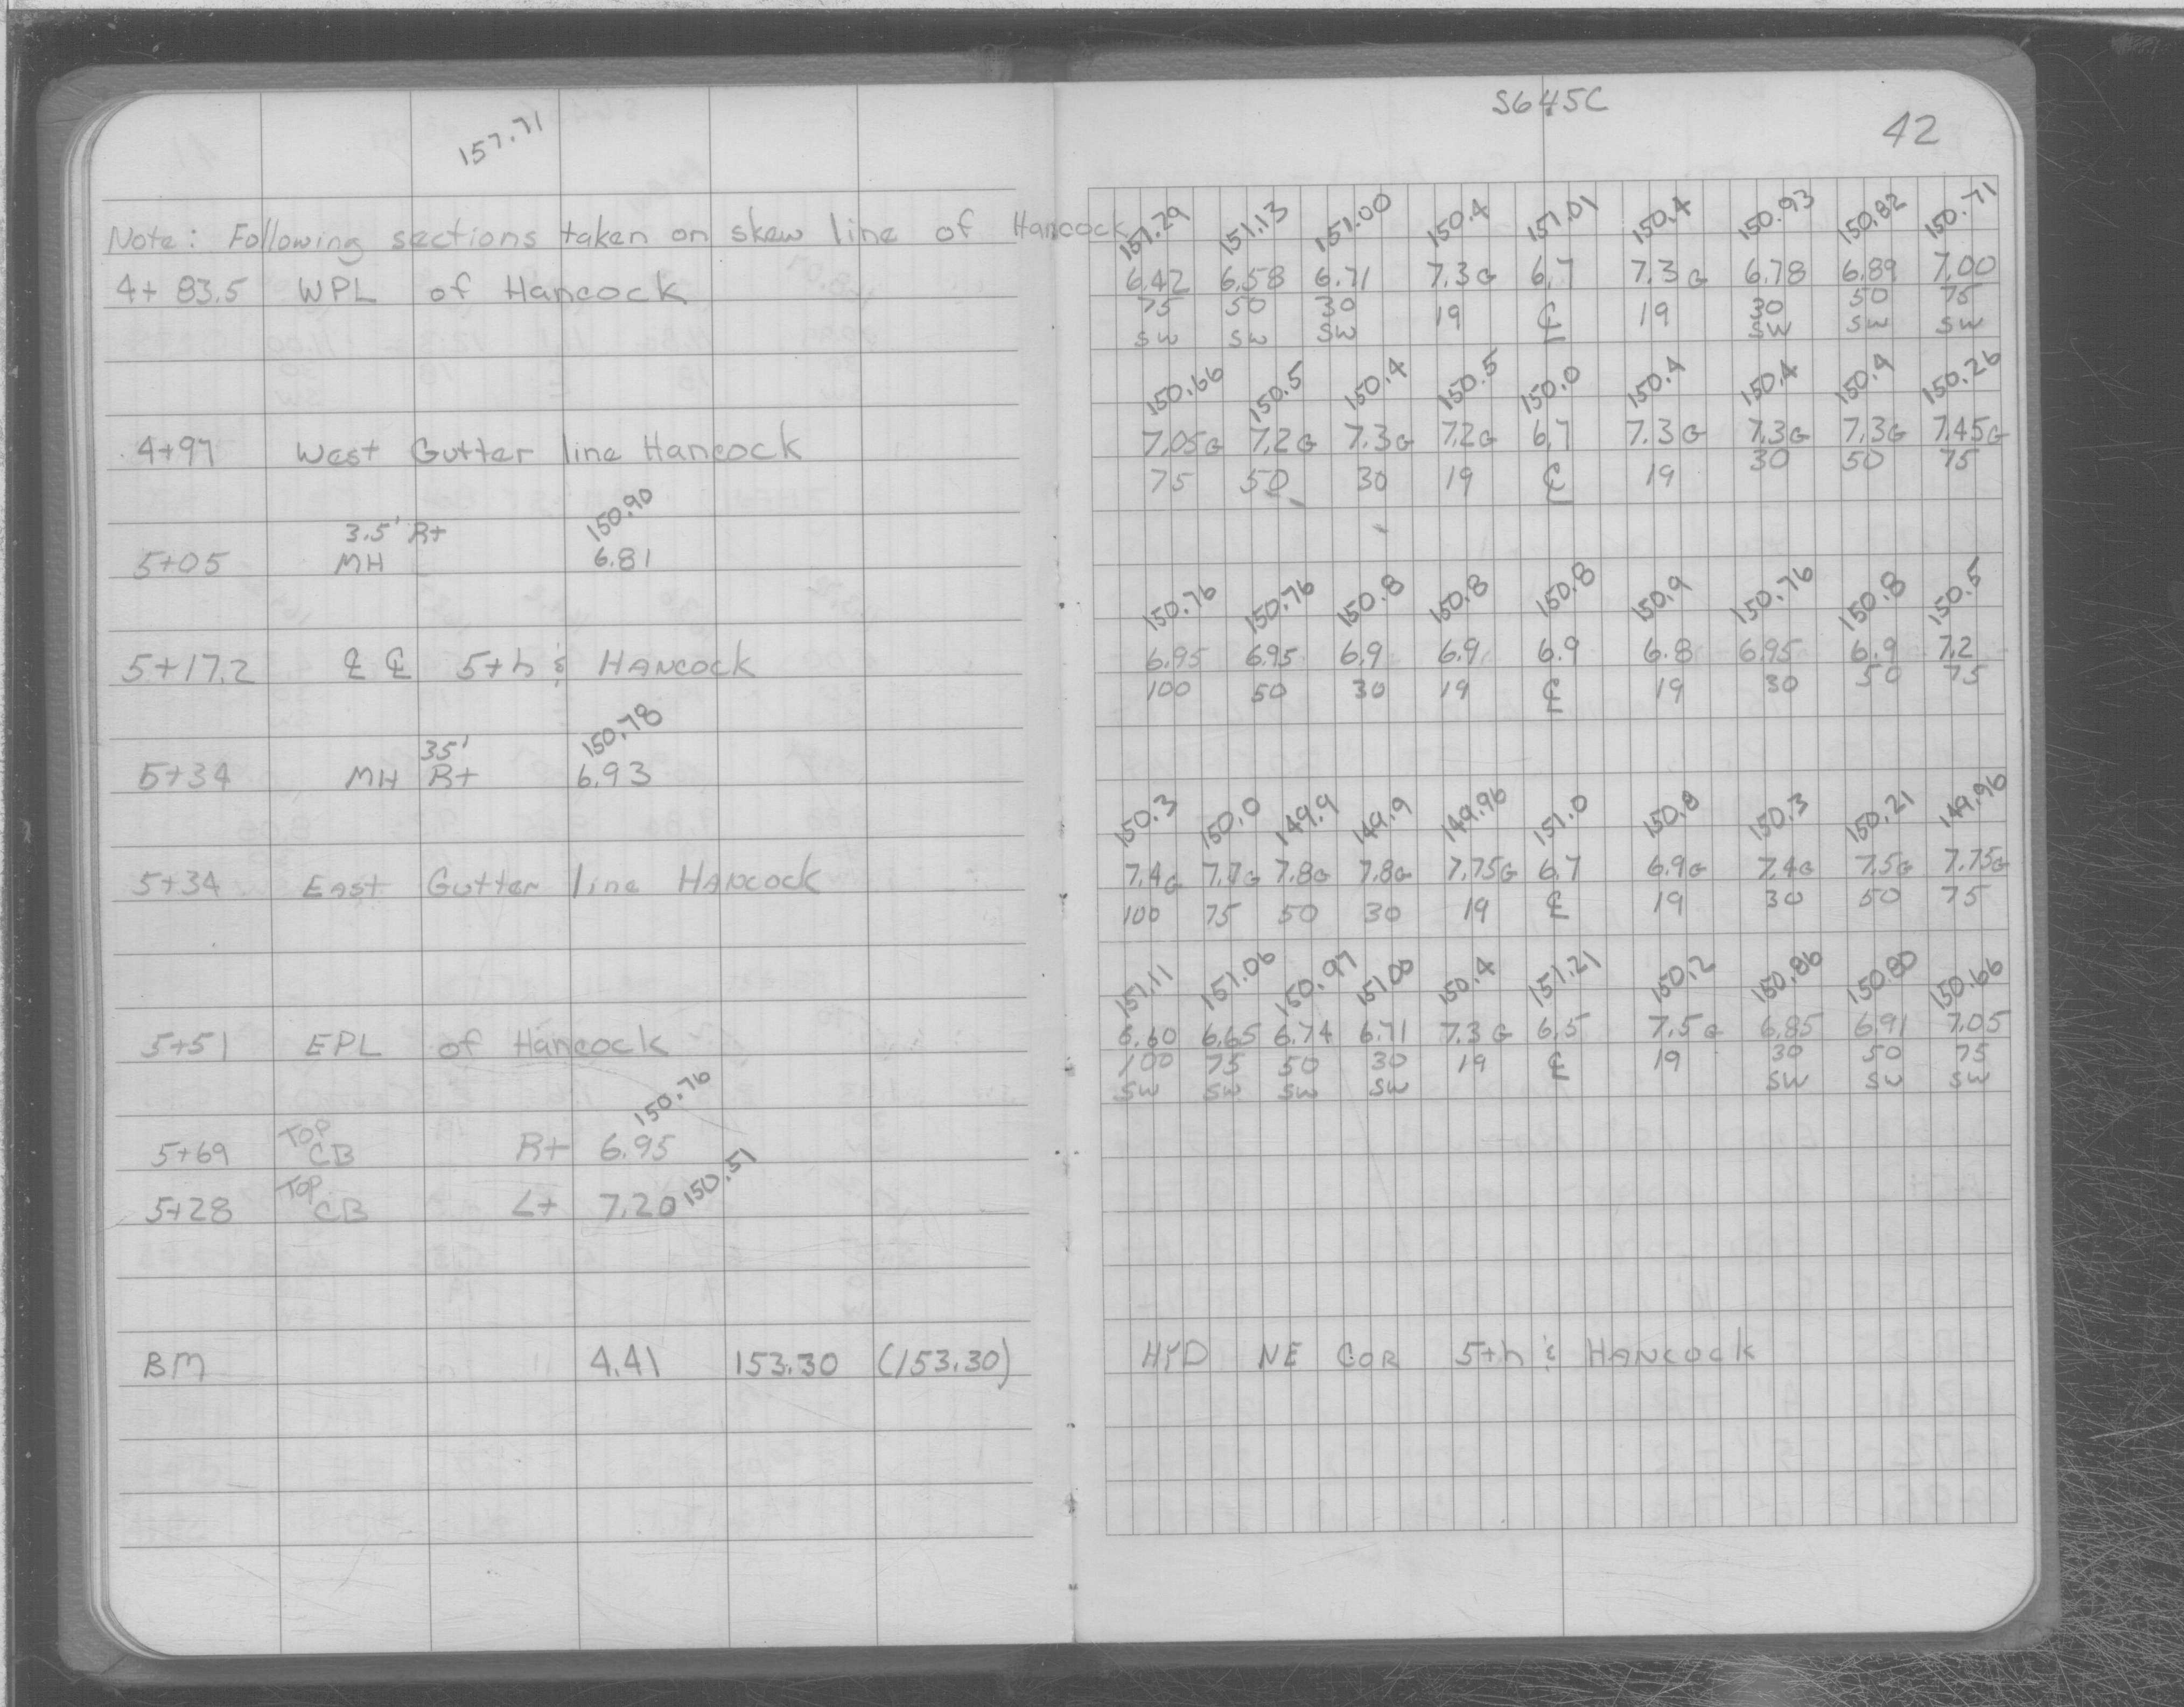 157.71
Note: Following sections taken on skew line of Hancock
4+83.5 WPL of Hancock
4+97 West Gutter line Hancock
3.5' Rt 150.90
5+05 MH 6.81
5+17.2 ℄ ℄ 5th & HANCOCK
35' 150.78
5+34 MH Rt 6.93
5+34 East Gutter line HANCOCK
5+51 EPL of Hancock
150.76
5+69 TOP CB Rt 6.95
5+28 TOP CB Lt 7.20 150.51
BM 4.41 153.30 (153.30)
S645C
42
151.29 151.13 151.00 150.4 151.01 150.4 150.93 150.82 150.71
6.42 6.58 6.71 7.3G 6.7 7.3G 6.78 6.89 7.00
75 50 30 19 ℄ 19 30 50 75
SW SW SW SW SW SW
150.66 150.5 150.4 150.5 150.0 150.4 150.4 150.4 150.26
7.05G 7.2G 7.3G 7.2G 6.7 7.3G 7.3G 7.3G 7.45G
75 50 30 19 ℄ 19 30 50 75
150.76 150.76 150.8 150.8 150.8 150.9 150.76 150.8 150.5
6.95 6.95 6.9 6.9 6.9 6.8 6.95 6.9 7.2
100 50 30 19 ℄ 19 30 50 75
150.3 150.0 149.9 149.9 149.96 151.0 150.8 150.3 150.21 149.96
7.4G 7.7G 7.8G 7.8G 7.75G 6.7 6.9G 7.4G 7.5G 7.75G
100 75 50 30 19 ℄ 19 30 50 75
151.11 151.06 150.97 151.00 150.4 151.21 150.2 150.86 150.80 150.66
6.60 6.65 6.74 6.71 7.3G 6.5 7.5G 6.85 6.91 7.05
100 75 50 30 19 ℄ 19 30 50 75
SW SW SW SW SW SW SW
HYD NE COR 5th & HANCOCK